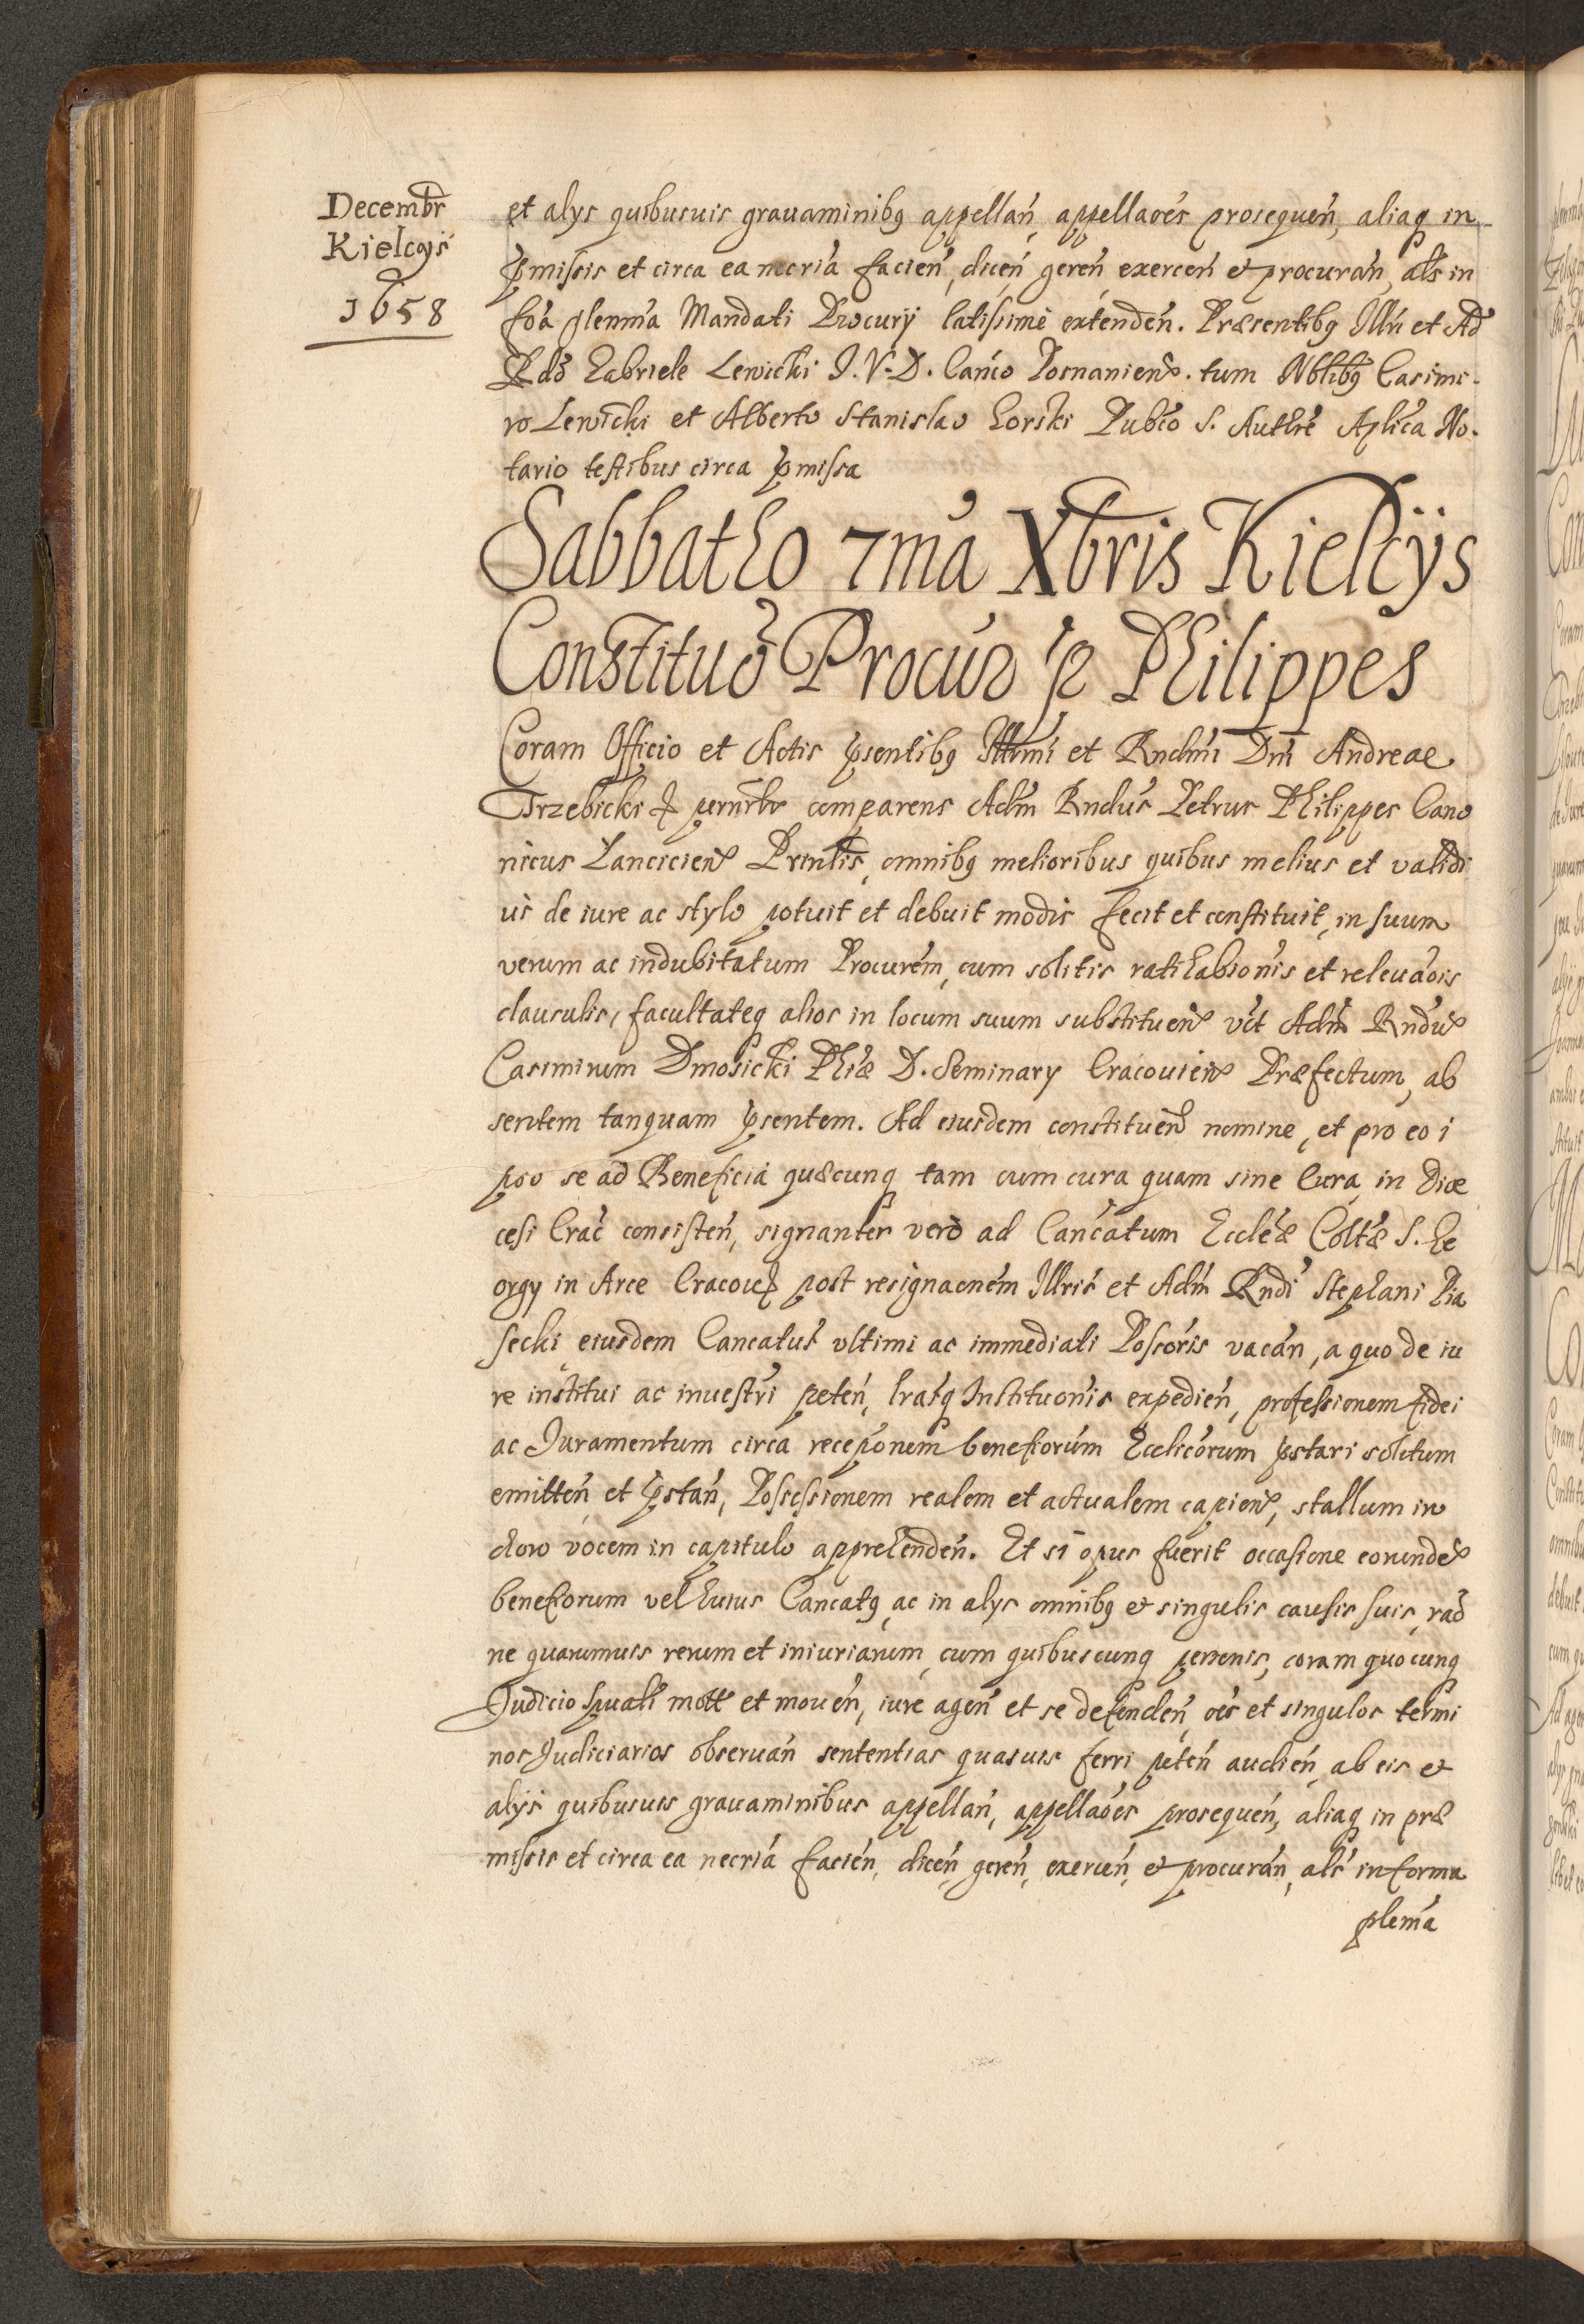 Decembr
Kielcys
1658
et alys quibusuis grauaminibq appellań, appellaoės prosequeń, aliaq in
pmissis et circa ea necria facień, diceń gereń exerceń et procurań, als in
foa plenma Mandati Procury latissime extendeń. Præsentibq Illri et Ad
Rdo Gabriele Lewicki J. V. D. Canco Posnanien. tum Nblibq Casimi-
ro Lewicki et Alberto Stanislao Gorski Pubco S. Authre Aplica No-
tario testibus circa pmissa
Sabbatho 7ma Xbris Kielcijs
Constituo Procuo p Philippes
Coram Officio et Actis psentibq Illrmi et Rndmi Dni Andreae
Trzebicki comparens Adm Rndus Petrus Philippes Cano
nicus Lancicien omnibq melioribus quibus melius et validi
us de iure ac stylo potuit et debuit modis fecit et constituit, in suum
verum ac indubitatum Procurem, cum solitis ratihabionis et releuaois
clausulis, facultateq alios in locum suum substituen vct Adm Rndu
Casimirum Dmosicki Phiæ D. Seminary Cracouien Præfectum, ab
sentem tanquam psentem. Ad eiusdem constituen nomine, et pro eo i
pso se ad Beneficia quæcunq tam cum cura quam sine Cura in Diœ
cesi Crac consisteń, signanter vero ad Cancatum Eccleæ Coltæ S. Ge
orgy in Arce Cracou post resignaonem Illris et Adm Rndi Stephani Pia
secki eiusdem Cancatus vltimi ac immediati Possoris vacań, a quo de iu
re institui ac inuestri peteń, lrasq Instituonis expedień, professionem fidei
ac Juramentum circa recepionem beneficorum Ecclicorum pstari solitum
emitteń et pstań, Possessionem realem et actualem capien, stallum in
choro vocem in capitulo apprehendeń. Et si opus fuerit occasione eorunde
beneficorum vel huius Cancatq, ac in alys omnibq et singulis causis suis, rao
ne quarumuis rerum et iniuriarum, cum quibuscunq personis, coram quocunq
Judicio spuali mott et moueń, iure ageń et se defendeń, oes et singulos termi
nos Judiciarios obseruań sententias quasuis ferri peteń audień, ab eis et
alijs quibusuis grauaminibus appellań, appellaoes prosequeń, aliaq in præ
missis et circa ea necria facień, diceń, gereń, exerceń, et procurań, als in forma
plema